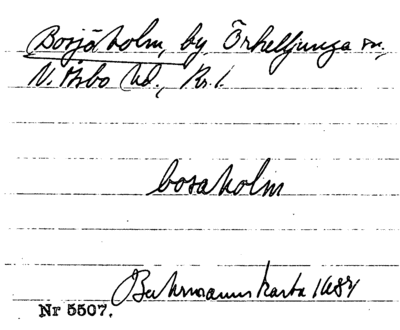 Borjåholm, by, Örkelljunga sn,
N. Åsbo hd., Kr. l.
bosaholm
Buhrmanns karta 1684
Nr 5507.